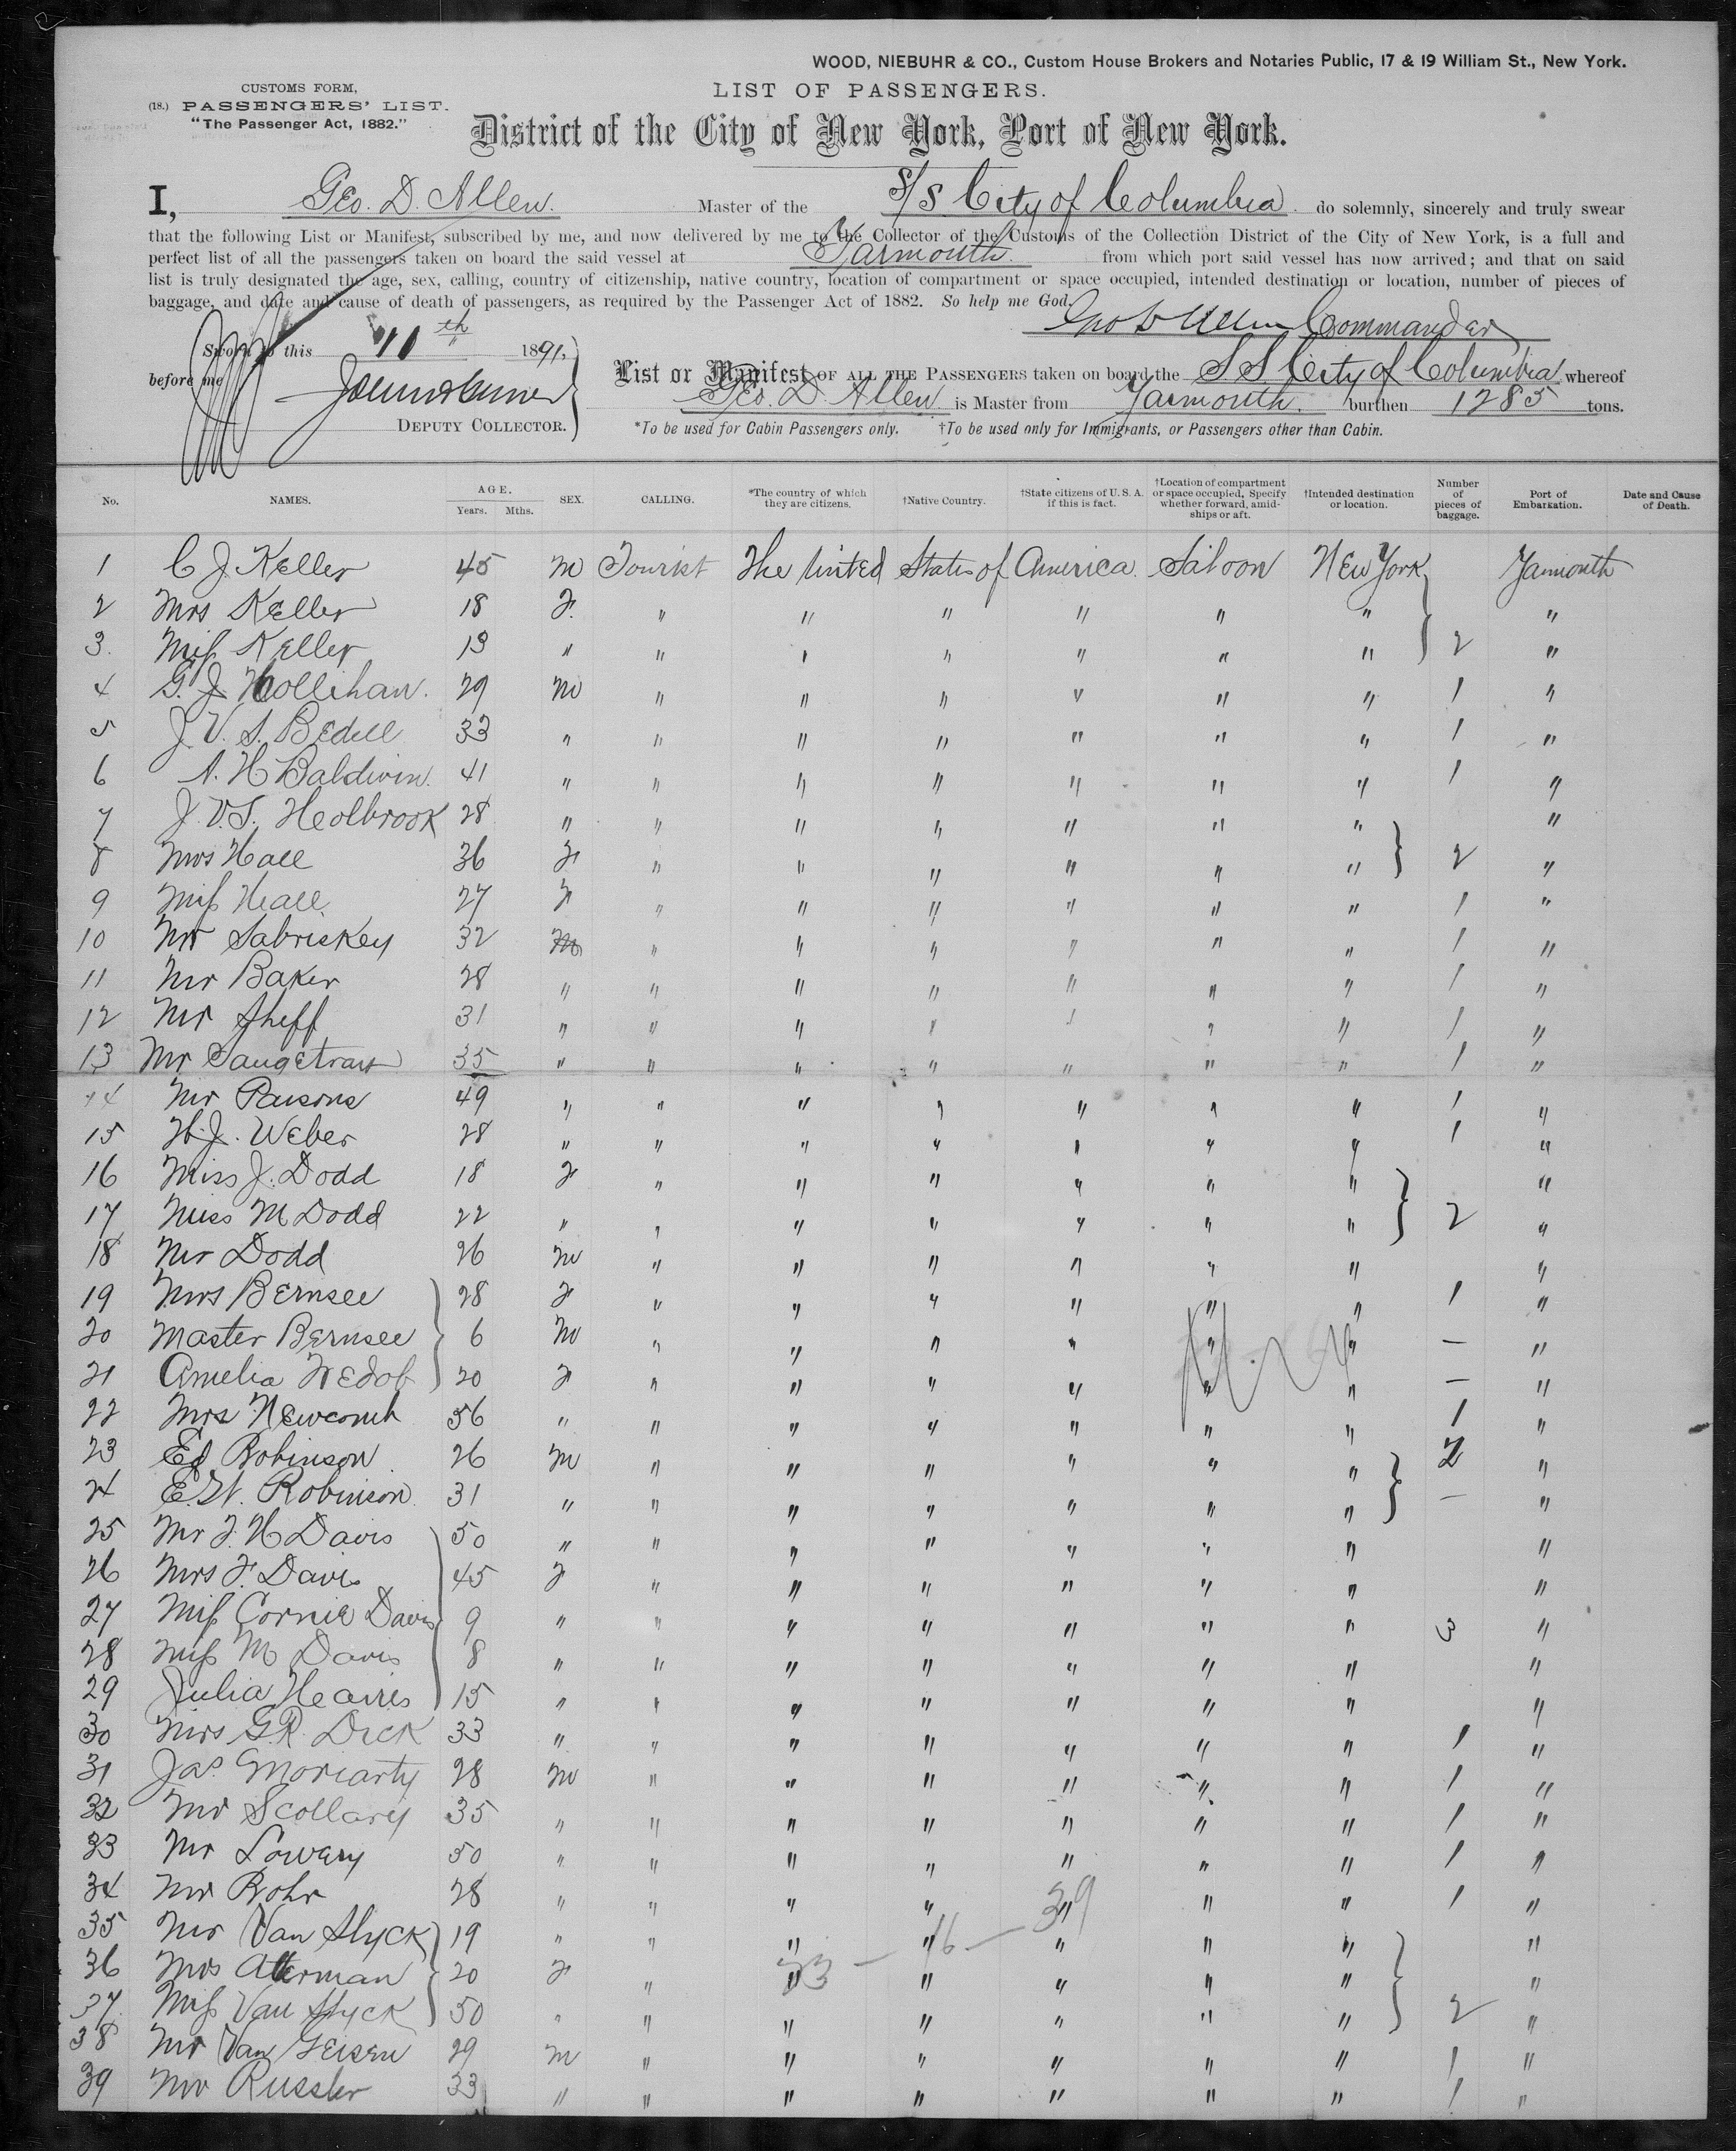 WOOD, NIEBUHR & CO., Custom House Brokers and Notaries Public, 17 & 19 William St., New York.
CUSTOMS FORM,
(18.) PASSENGERS' LIST.
"The Passenger Act, 1882."
LIST OF PASSENGERS.
District of the City of New York, Port of New York.
I, Geo. D. Allen. Master of the S/S City of Columbia. do solemnly, sincerely and truly swear
that the following List or Manifest, subscribed by me, and now delivered by me to the Collector of the Customs of the Collection District of the City of New York, is a full and
perfect list of all the passengers taken on board the said vessel at Yarmouth. from which port said vessel has now arrived; and that on said
list is truly designated the age, sex, calling, country of citizenship, native country, location of compartment or space occupied, intended destination or location, number of pieces of
baggage, and date and cause of death of passengers, as required by the Passenger Act of 1882. So help me God.
Geo D Allen Commander
Sworn to this 11th 1891,
before me
DEPUTY COLLECTOR.
List or Manifest OF ALL THE PASSENGERS taken on board the S S City of Columbia whereof
Geo. D Allen is Master from Yarmouth. burthen 1285 tons.
*To be used for Cabin Passengers only. †To be used only for Immigrants, or Passengers other than Cabin.
No. NAMES. AGE. Years. Mths. SEX. CALLING. *The country of which they are citizens. †Native Country. †State citizens of U.S.A. if this is fact. †Location of compartment or space occupied, Specify whether forward, amidships or aft. †Intended destination or location. Number of pieces of baggage. Port of Embarkation. Date and Cause of Death.
1 C J Keller 45 m Tourist The United States of America. Saloon New York Yarmouth
2 Mrs Keller 18 F. " " " " " " "
3. Miss Keller 13 " " " " " " " 2 "
4 G. J Hollihan. 29 m " " " " " " 1 "
5 J. V. S. Bedell 33 " " " " " " " 1 "
6 A. H Baldwin. 41 " " " " " " " 1 "
7 J. V.S. Holbrook 28 " " " " " " " "
8 Mrs Hall 36 F " " " " " " 2 "
9 Miss Hall 27 F " " " " " " 1 "
10 Mr Sabriskey 32 m " " " " " " 1 "
11 Mr Baker 28 " " " " " " " 1 "
12 Mr Sheff 31 " " " " " " " 1 "
13 Mr 35 " " " " " " " 1 "
14 Mr Parsons 49 " " " " " " " 1 "
15 H. J. Weber 28 " " " " " " " 1 "
16 Miss J. Dodd 18 F " " " " " " "
17 Miss M Dodd 22 " " " " " " " 2 "
18 Mr Dodd 26 m " " " " " " "
19 Mrs Bernsee 28 F " " " " " " 1 "
20 Master Bernsee 6 m " " " " " " — "
21 Amelia 20 F " " " " " " — "
22 Mrs Newcomb 56 " " " " " " " 1 "
23 Ed Robinson 26 m " " " " " " 2 "
24 E. W. Robinson 31 " " " " " " " — "
25 Mr F. H Davis 50 " " " " " " " "
26 Mrs F. Davis 45 F " " " " " " "
27 Miss Cornie Davis 9 " " " " " " " 3 "
28 Miss M Davis 8 " " " " " " " "
29 Julia Harris 15 " " " " " " " "
30 Mrs G.R. Dick 33 " " " " " " " 1 "
31 Jas Moriarty 28 m " " " " " " 1 "
32 Mr Scollary 35 " " " " " " " 1 "
33 Mr Lowery 50 " " " " " " " 1 "
34 Mr Rohr 28 " " " " " " " 1 "
35 Mr Van Slyck 19 " " " " " " " "
36 Mrs Atterman 20 F " " " " " " "
37. Miss Van Slyck 50 " " " " " " " 2 "
38 Mr Van Geisen 29 m " " " " " " 1 "
39 Mr Russler 33 " " " " " " " 1 "
23 — 16 — 39